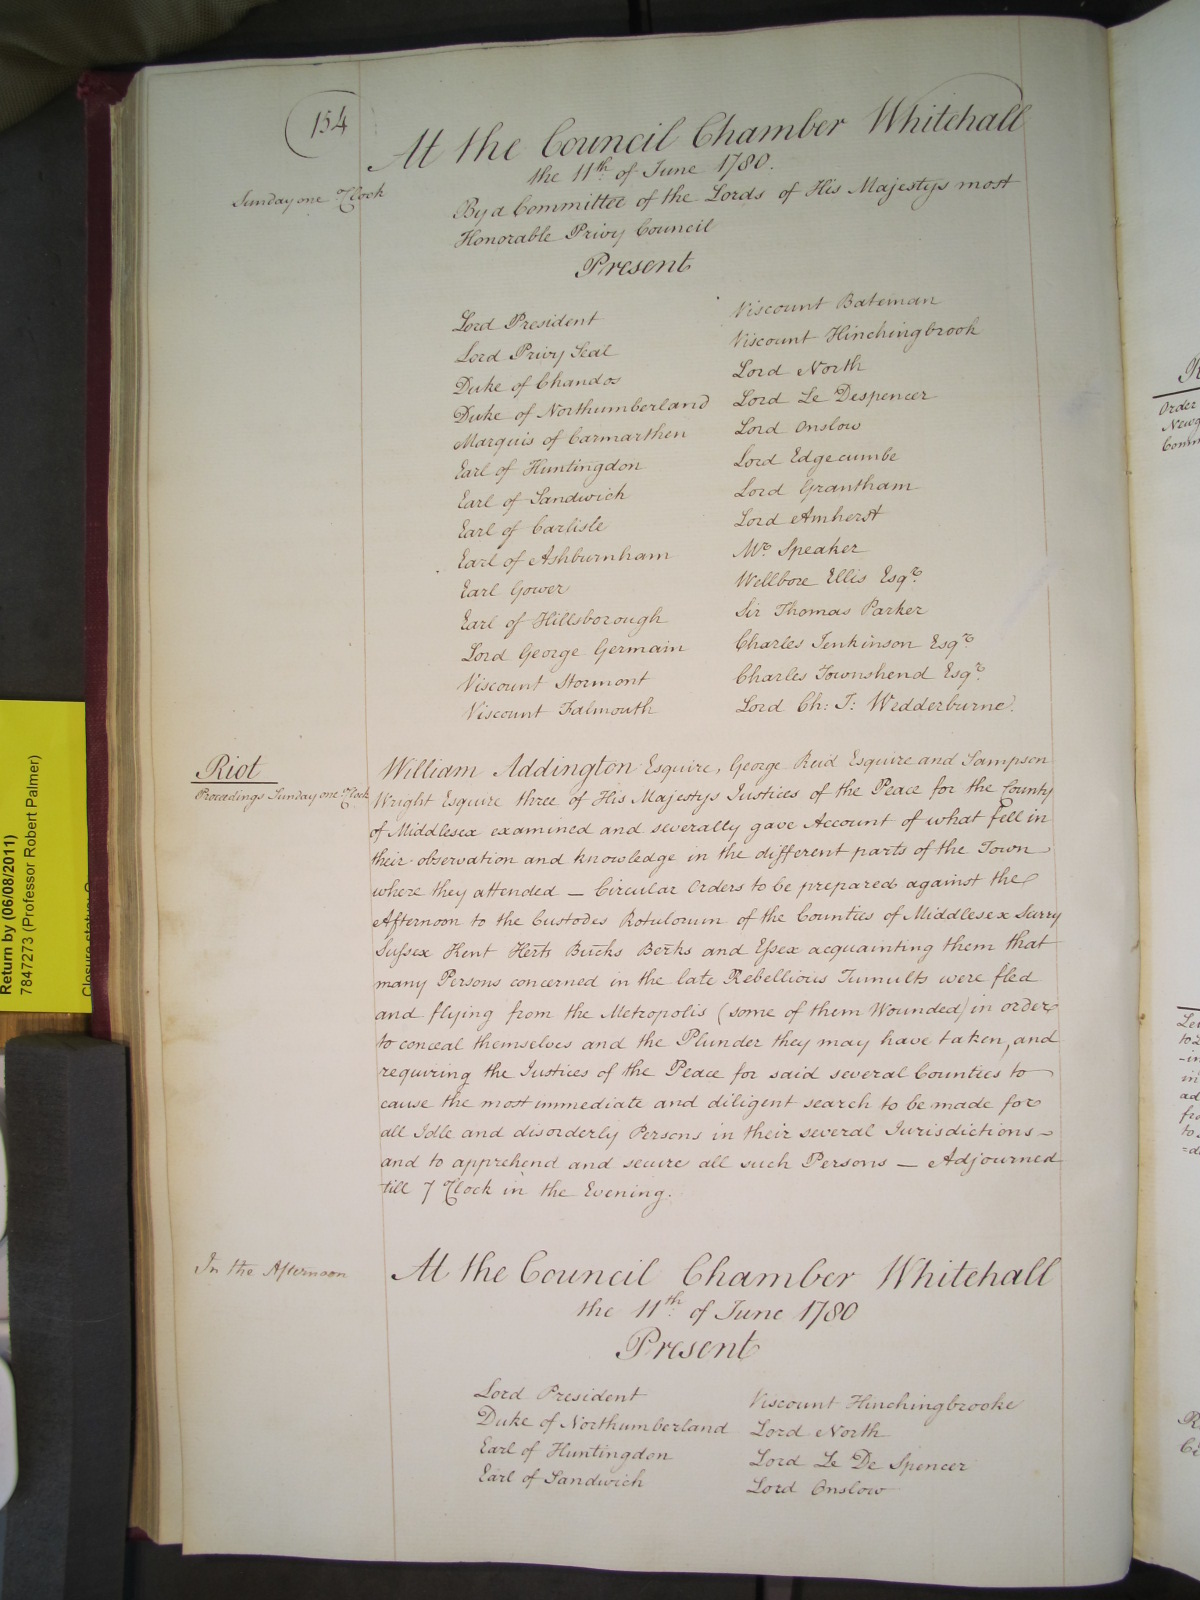 154
At the Council Chamber Whitehall
the 11th of June 1780.
Sunday one o'Clock
By a Committee of the Lords of His Majestys most
Honorable Privy Council
Present
Lord President
Lord Privy Seal
Duke of Chandos
Duke of Northumberland
Marquis of Carmarthen
Earl of Huntingdon
Earl of Sandwich
Earl of Carlisle
Earl of Ashburnham
Earl Gower
Earl of Hillsborough
Lord George Germain
Viscount Stormont
Viscount Falmouth
Viscount Bateman
Viscount Hinchingbrook
Lord North
Lord Le Despencer
Lord Onslow
Lord Edgecumbe
Lord Grantham
Lord Amherst
Mr. Speaker
Wellbore Ellis Esqr.
Sir Thomas Parker
Charles Jenkinson Esqr.
Charles Townshend Esqr.
Lord Ch: J: Wedderburne.
Riot
Proceedings Sunday one o'Clock
William Addington Esquire, George Reid Esquire and Sampson
Wright Esquire three of His Majestys Justices of the Peace for the County
of Middlesex examined and severally gave Account of what fell in
their observation and knowledge in the different parts of the Town
where they attended — Circular Orders to be prepared against the
Afternoon to the Custodes Rotulorum of the Counties of Middlesex Surry
Sussex Kent Herts Bucks Berks and Essex acquainting them that
many Persons concerned in the late Rebellious Tumults were fled
and flying from the Metropolis (some of them Wounded) in order
to conceal themselves and the Plunder they may have taken, and
requiring the Justices of the Peace for said several Counties to
cause the most immediate and diligent search to be made for
all Idle and disorderly Persons in their several Jurisdictions —
and to apprehend and secure all such Persons — Adjourned
till 7 o'Clock in the Evening.
In the Afternoon
At the Council Chamber Whitehall
the 11th of June 1780
Present
Lord President
Duke of Northumberland
Earl of Huntingdon
Earl of Sandwich
Viscount Hinchingbrooke
Lord North
Lord Le De Spencer
Lord Onslow
Return by (06/08/2011)
7847273 (Professor Robert Palmer)
Closure status:
Order